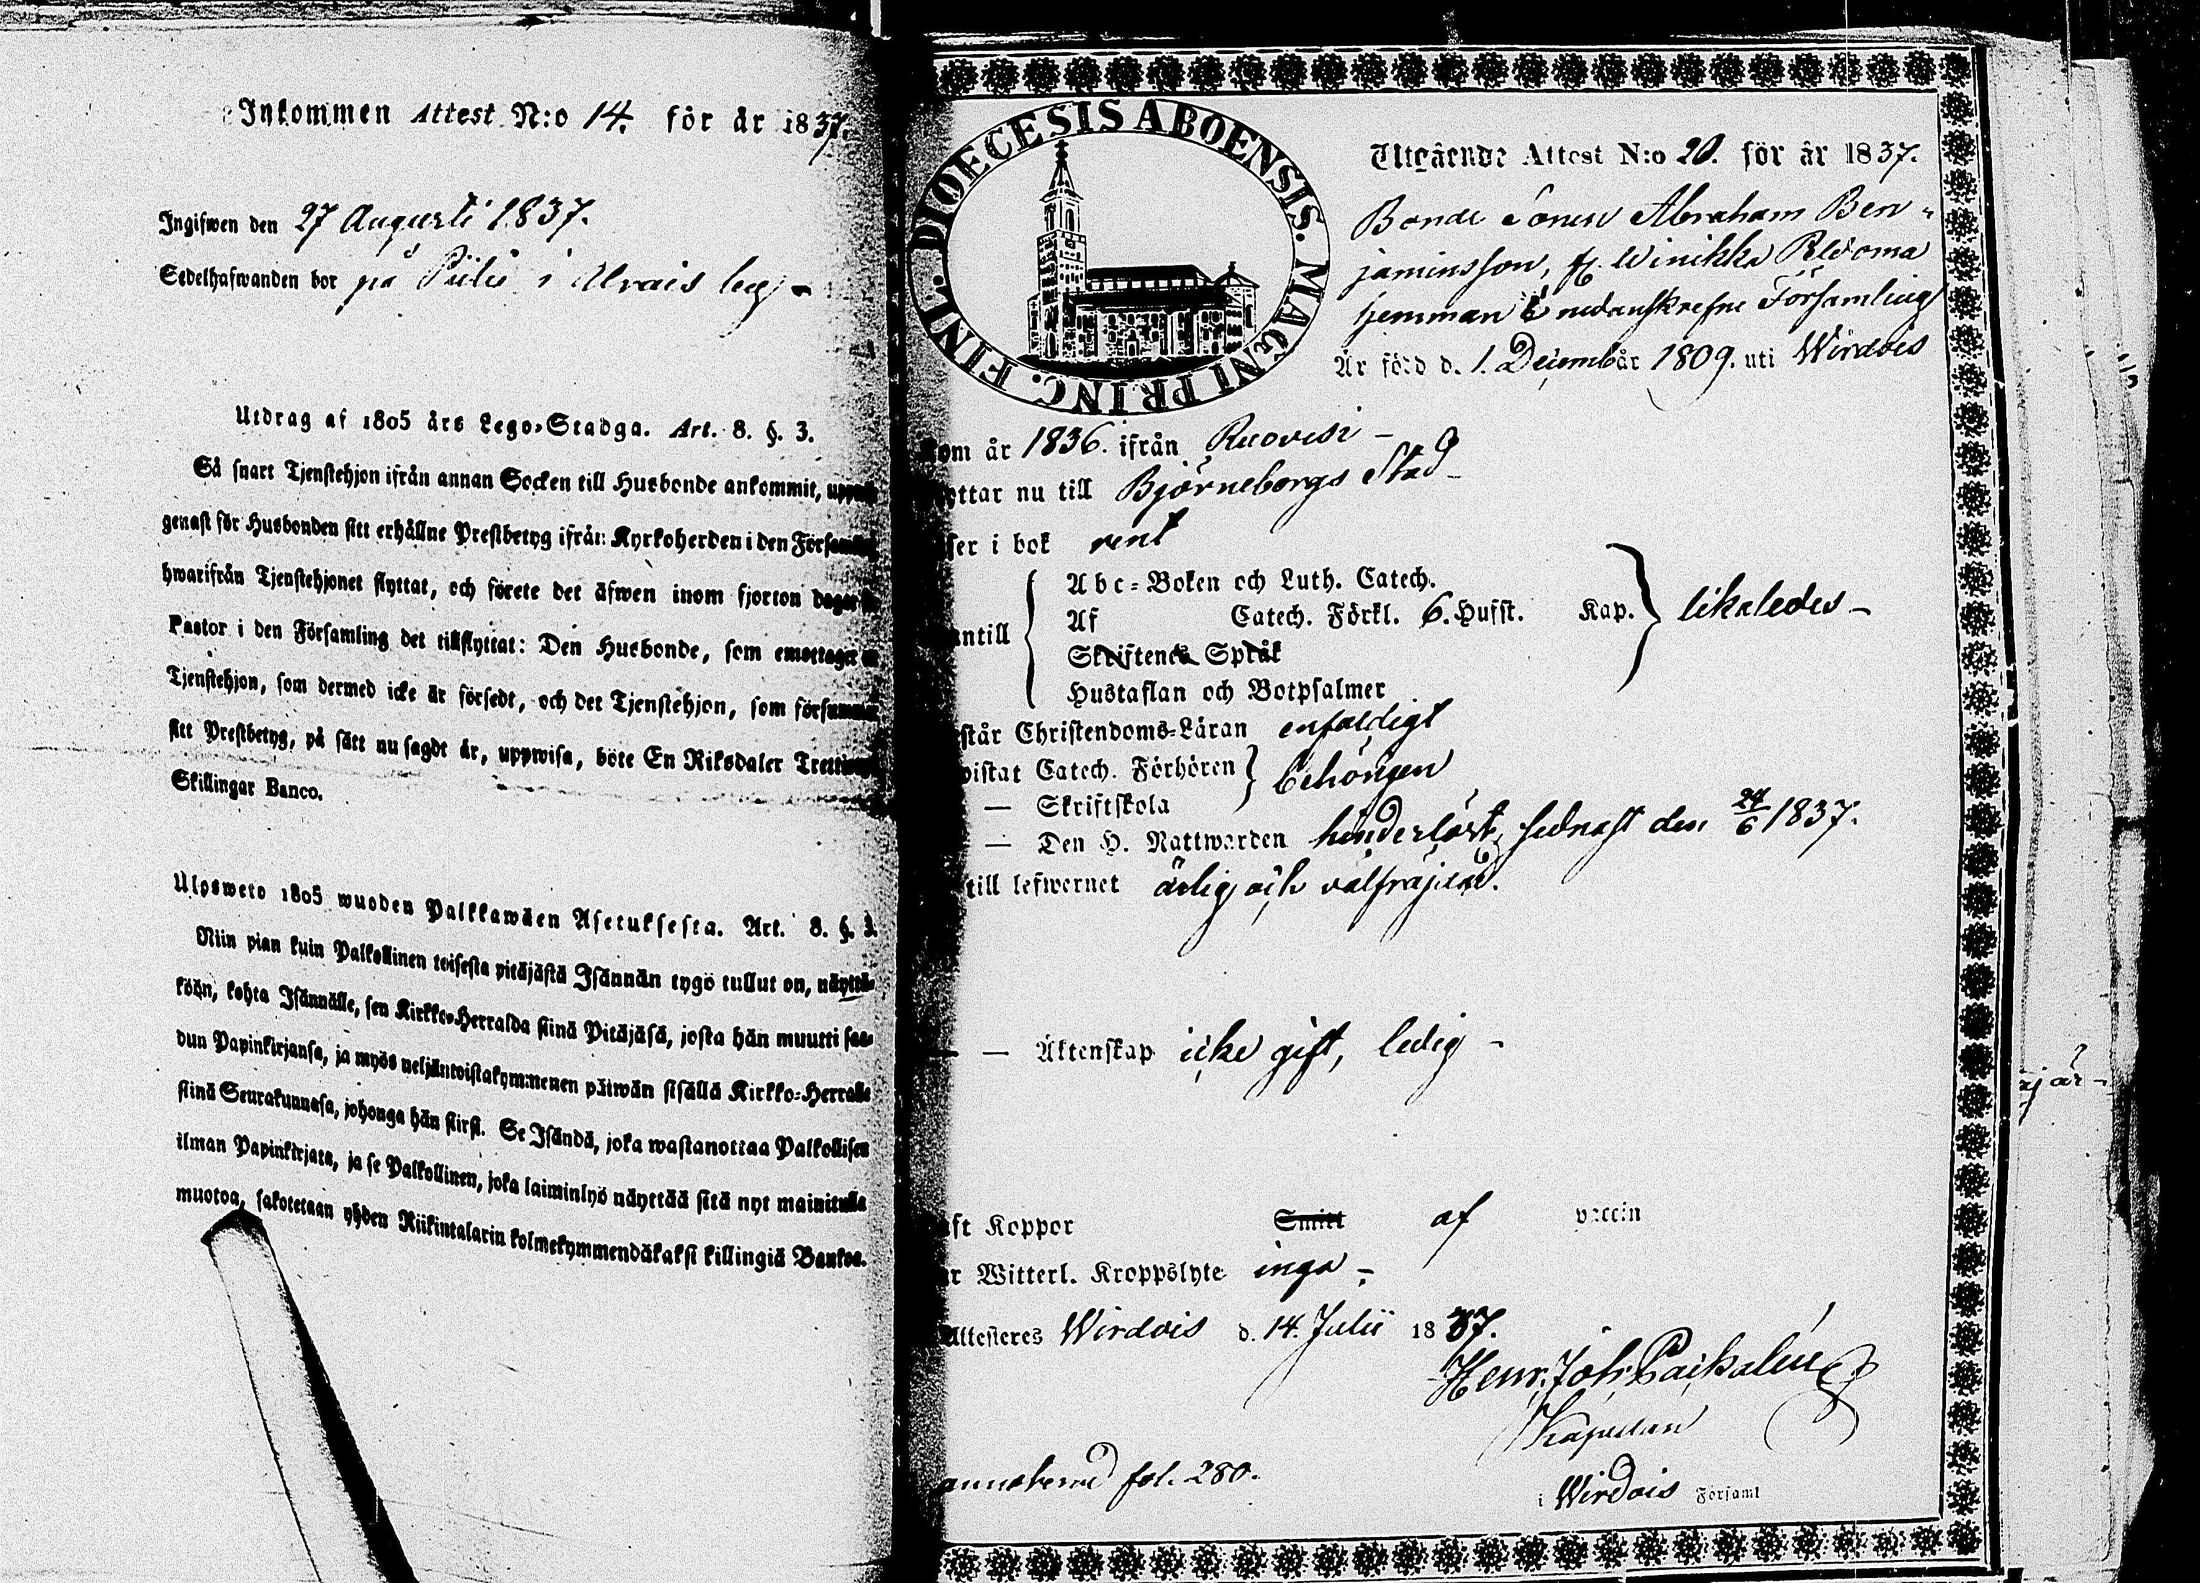 Inkommen Attest N:o 14. för år 1837.
Ingifwen den 27 Augusti 1837.
Sedelhafwanden bor på i
Utdrag af 1805 års Lego-Stadga. Art. 8. §. 3.
Så snart Tjenstehjon ifrån annan Socken till Husbonde ankommit,
genast för Husbonden sitt erhållne Prestbetyg ifrån Kyrkoherden i den
hwarifrån Tjenstehjonet flyttat, och förete det äfwen inom fjorton
Pastor i den Församling det tillflyttat: Den Husbonde, som emottager
Tjenstehjon, som dermed icke är försedt, och det Tjenstehjon, som
sitt Prestbetyg, på sätt nu sagdt är, uppwisa, böte En Riksdaler
Skillingar Banco.
Ulosweto 1805 wuoden Palkkawäen Asetuksesta. Art. 8. §. 3.
Niin pian kuin Palkollinen toisesta pitäjästä Isännän tygö tullut on, näyttä-
köön, kohta Isännälle, sen Kirkko-Herralda siinä Pitäjäsä, josta hän muutti saa-
dun Papinkirjansa, ja myös neljäntoistakymmenen päiwän sisällä Kirkko-Herralle
siinä Seurakunnasa, johonga hän siirsi. Se Isändä, joka wastanottaa Palkollisen
ilman Papinkirjata, ja se Palkollinen, joka laiminlyö näyttää sitä nyt mainitulla
muotoa, sakotetaan yhden Riikintalarin kolmekymmendäkaksi killingiä Bankoa.
DIOECESIS ABOENSIS. MAGNI PRINC. FINL.
Utgående Attest N:o 20. för år 1837.
Bonde Sonen Abraham Ben-
jaminsson, fr. Winikka
hemman i nedanskrefne Församling
Är född d. 1. December 1809. uti Wirdois
Kom år 1836. ifrån Ruovesi -
flyttar nu till Björneborgs Stad -
läser i bok rent
Abc-Boken och Luth. Catech.
Af Catech. Förkl. 6. Hufst. Kap. likaledes -
utantill
Skriftenes Språk
Hustaflan och Botpsalmer
förstår Christendoms-Läran enfaldigt
bewistat Catech. Förhören behörigen
— Skriftskola
— Den H. Nattwarden hinderlöst, sednast den 24/6 1837.
till lefwernet ärlig och välfräjdad.
— — Äktenskap icke gift, ledig -
haft Koppor Smitt af vaccin
har Witterl. Kroppslyte inga -
Attesteres Wirdois d. 14. Julii 1837.
Henr. Joh.
Kapellan
fol. 280.
i Wirdois Församl